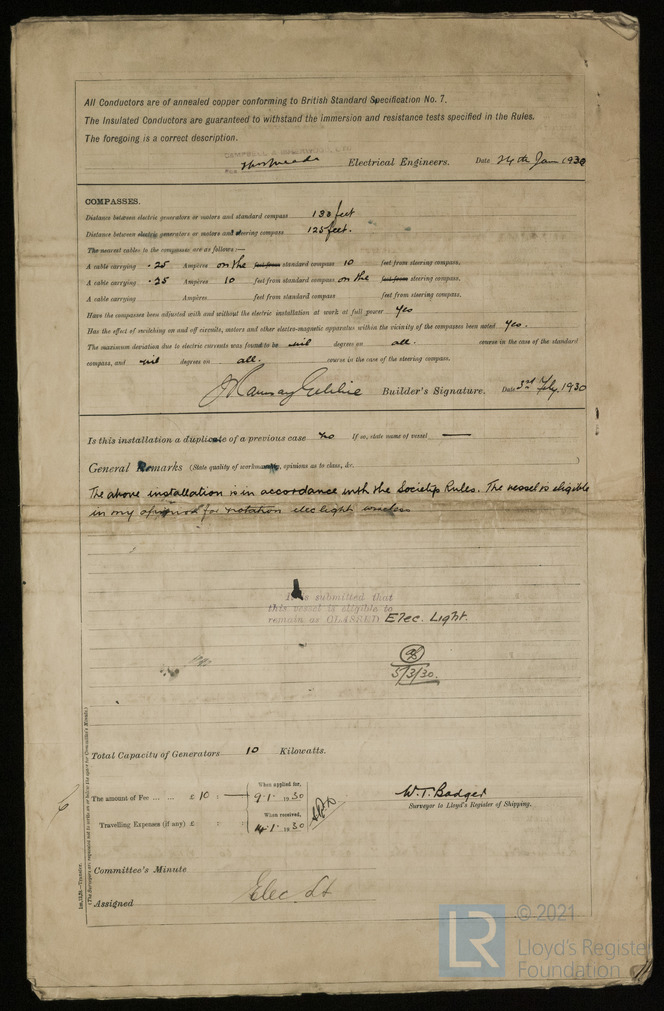 All Conductors are of annealed copper conforming to British Standard Specification No. 7.
The Insulated Conductors are guaranteed to withstand the immersion and resistance tests specified in the Rules.
The foregoing is a correct description.
Electrical Engineers. Date 24th Jan 1930
COMPASSES.
Distance between electric generators or motors and standard compass 130 feet
Distance between electric generators or motors and steering compass 125 feet.
The nearest cables to the compasses are as follows:—
A cable carrying .25 Ampères on the feet from standard compass 10 feet from steering compass.
A cable carrying .25 Ampères 10 feet from standard compass on the feet from steering compass.
A cable carrying Ampères feet from standard compass feet from steering compass.
Have the compasses been adjusted with and without the electric installation at work at full power Yes
Has the effect of switching on and off circuits, motors and other electro-magnetic apparatus within the vicinity of the compasses been noted Yes.
The maximum deviation due to electric currents was found to be nil degrees on all. course in the case of the standard
compass, and nil degrees on all. course in the case of the steering compass.
Builder's Signature. Date 3rd Feby. 1930
Is this installation a duplicate of a previous case No If so, state name of vessel —
General Remarks (State quality of workmanship, opinions as to class, &c. )
The above installation is in accordance with the Society's Rules. The vessel is eligible
in my opinion for notation elec light wireless
It is submitted that
this vessel is eligible to
remain as CLASSED Elec. Light.
5/3/30.
Total Capacity of Generators 10 Kilowatts.
The amount of Fee ... ... £ 10 : — : When applied for, 9.1. 1930
Travelling Expenses (if any) £ : : When received, 14.1. 1930
W. T. Badger
Surveyor to Lloyd's Register of Shipping.
Committee's Minute
Assigned Elec Lt
(The Surveyors are requested not to write on or below the space for Committee's Minute.)
© 2021
LR
Lloyd's Register
Foundation